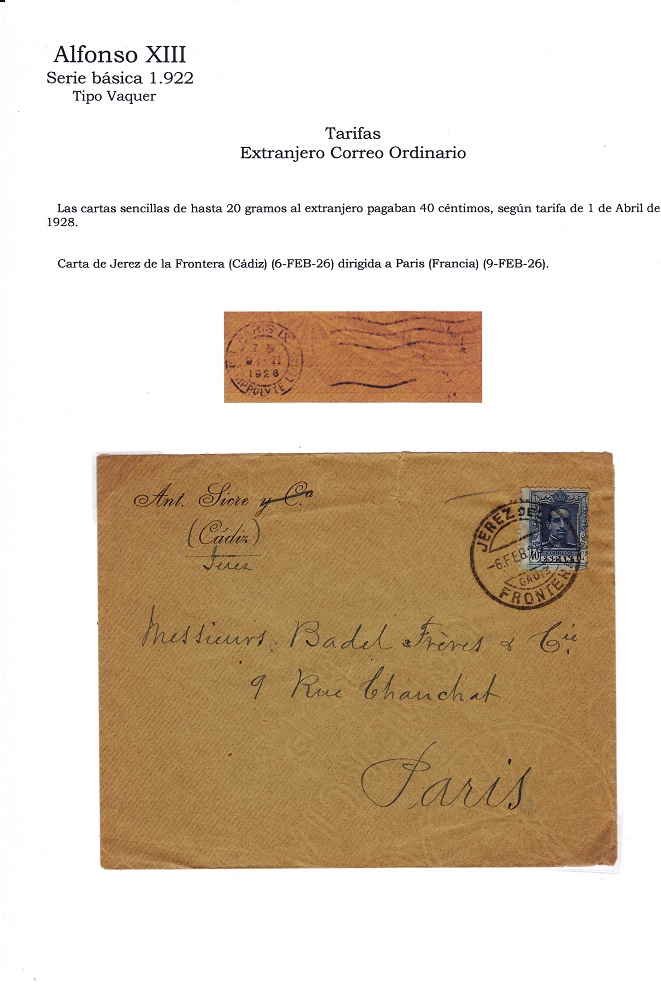 Alfonso XIII
Serie básica 1.922
Tipo Vaquer
Tarifas
Extranjero Correo Ordinario
Las cartas sencillas de hasta 20 gramos al extranjero pagaban 40 céntimos, según tarifa de 1 de Abril de
1928.
Carta de Jerez de la Frontera (Cádiz) (6-FEB-26) dirigida a Paris (Francia) (9-FEB-26).
PARIS IX
1926
HIPPOLYTE
Ant. Sicre y Cª
(Cádiz)
Jerez
JEREZ DE
-6.FEB.26
CADIZ
FRONTERA
40 Cs
Messieurs Badel Frères & Cie
9 Rue Chauchat
Paris